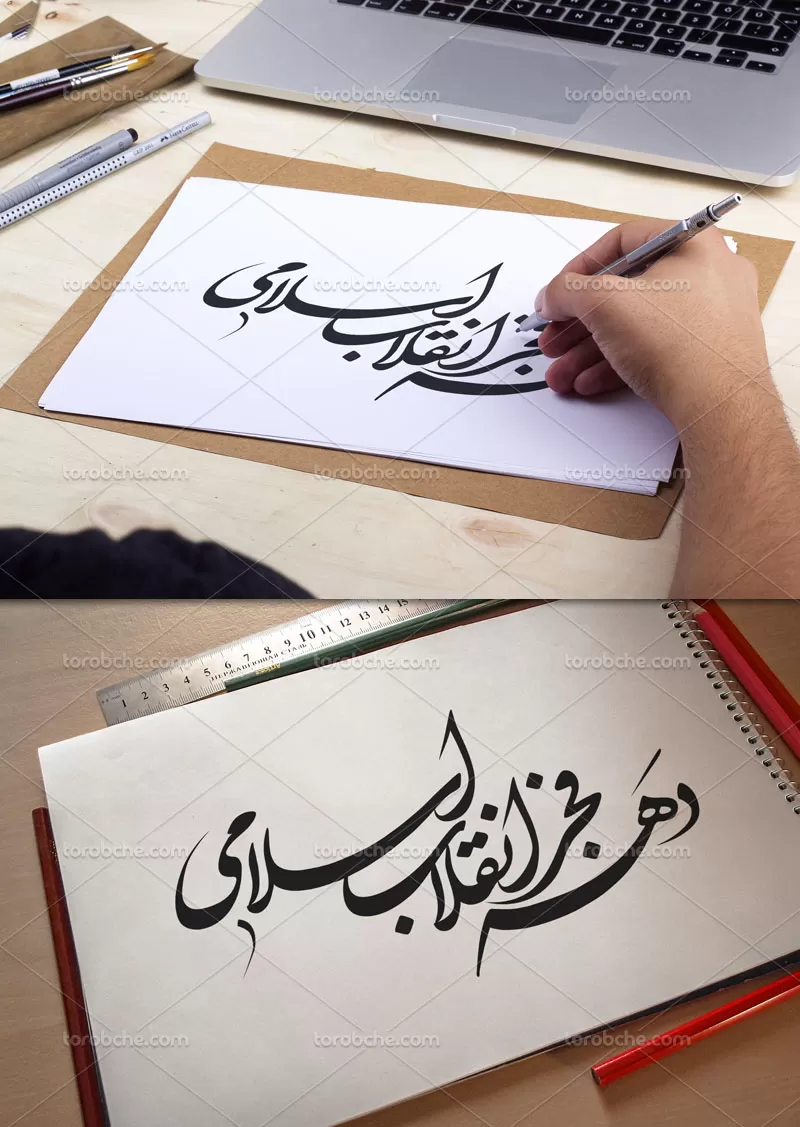 torobche.com torobche.com torobche.com
torobche.com torobche.com torobche.com
فجر انقلاب اسلامی
torobche.com torobche.com torobche.com
1 2 3 4 5 6 7 8 9 10 11 12 13 14 15
НЕРЖАВЕЮЩАЯ СТАЛЬ
torobche.com torobche.com torobche.com
دهه فجر انقلاب اسلامی
torobche.com torobche.com torobche.com
torobche.com torobche.com torobche.com